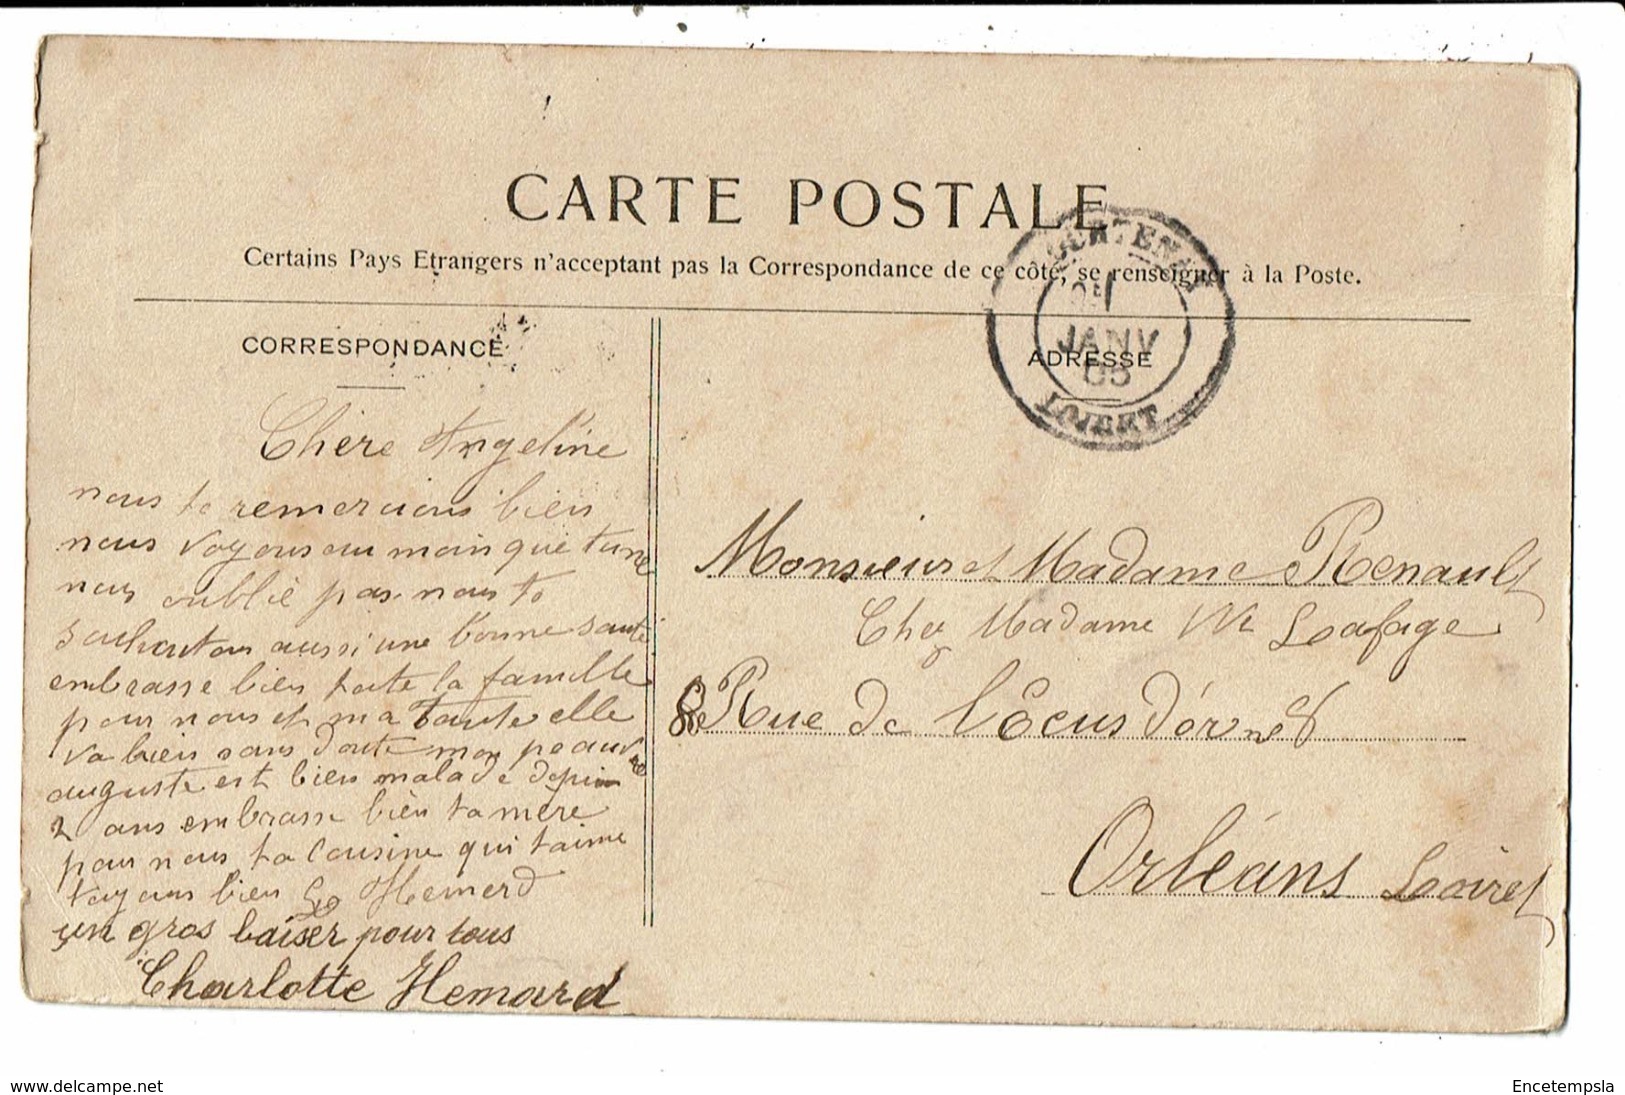 CARTE POSTALE
Certains Pays Etrangers n'acceptant pas la Correspondance de ce côté, se renseigner à la Poste.
CORRESPONDANCE
Chère Angeline
nous te remercions bien
nous voyons au moins que tu ne
nous oublie pas nous te
souhaitons aussi une bonne santé
embrasse bien toute la famille
pour nous et ma tante elle
va bien sans doute mon peauvre
auguste est bien malade depui
2 ans embrasse bien ta mère
pour nous ta cousine qui taime
toujours bien Hemerd
un gros baiser pour tous
Charlotte Hemard
ADRESSE
JANV
05
LOIRET
Monsieur et Madame Renault
Chez Madame Ve Lafage
8 Rue de l'Ecus d'or no 8
Orléans Loiret
www.delcampe.net
Encetempsla